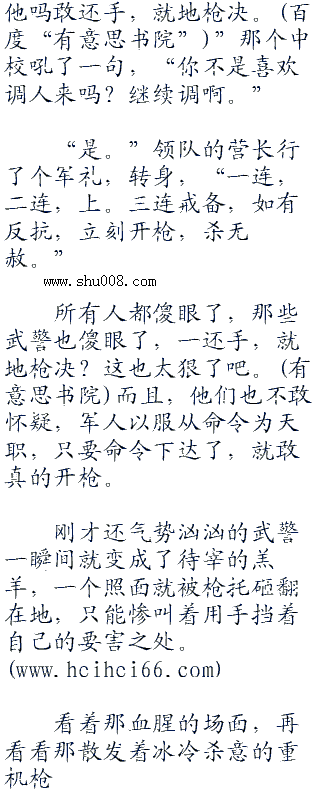 他吗敢还手，就地枪决。(百
度“有意思书院”)”那个中
校吼了一句，“你不是喜欢
调人来吗？继续调啊。”
“是。”领队的营长行
了个军礼，转身，“一连，
二连，上。三连戒备，如有
反抗，立刻开枪，杀无
赦。”
www.shu008.com
所有人都傻眼了，那些
武警也傻眼了，一还手，就
地枪决？这也太狠了吧。(有
意思书院)而且，他们也不敢
怀疑，军人以服从命令为天
职，只要命令下达了，就敢
真的开枪。
刚才还气势汹汹的武警
一瞬间就变成了待宰的羔
羊，一个照面就被枪托砸翻
在地，只能惨叫着用手挡着
自己的要害之处。
(www.hcihci66.com)
看着那血腥的场面，再
看看那散发着冰冷杀意的重
机枪